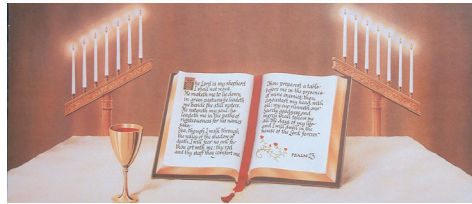 The Lord is my shepherd
I shall not want.
He maketh me to lie down
in green pastures he leadeth
me beside the still waters.
He restoreth my soul: he
leadeth me in the paths of
righteousness for his names
sake.
Yea, though I walk through
the valley of the shadow of
death, I will fear no evil for
thou art with me: thy rod
and thy staff they comfort me.
Thou preparest a table
before me in the presence
of mine enemies: thou
anointest my head with
oil; my cup runneth over.
Surely goodness and
mercy shall follow me
all the days of my life:
and I will dwell in the
house of the Lord forever.
PSALM 23